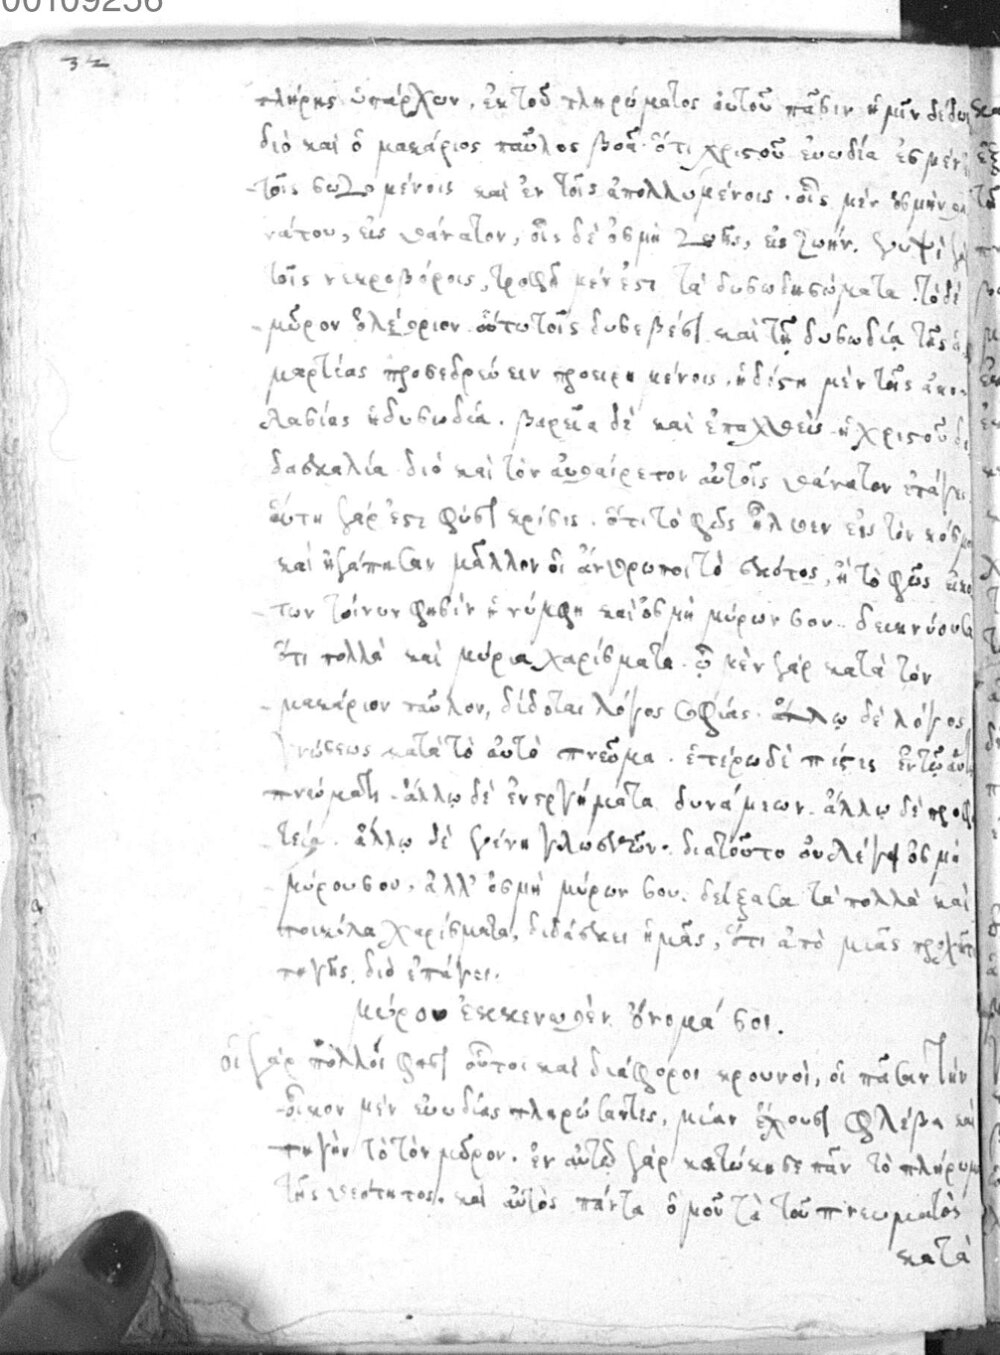 00109256
34
πλήρης ὑπάρχων, ἐκ τοῦ πληρώματος αὐτοῦ πᾶσιν ἡμῖν
διό καὶ ὁ μακάριος παῦλος βοᾷ· ὅτι χριστοῦ εὐωδία ἐσμὲν
τοῖς σωζομένοις καὶ ἐν τοῖς ἀπολλυμένοις· οἷς μὲν ὀσμὴν θα
νάτου, εἰς θάνατον, οἷς δὲ ὀσμὴ ζωῆς, εἰς ζωήν.
τοῖς νεκροβόροις, τροφὴ μέν ἐστι τὰ δυσώδη σώματα. τὸ δὲ
μῦρον ὀλέθριον. οὕτω τοῖς δυσεβέσι καὶ τῇ δυσωδίᾳ τῆς ἁ
μαρτίας προσεδρεύειν προειρημένοις, ἡδίστη μὲν τῆς ἀκο
λασίας ἡ δυσωδία. βαρεῖα δὲ καὶ ἐπαχθὴς ἡ χριστοῦ δι
δασκαλία διό καὶ τὸν αὐθαίρετον αὐτοῖς θάνατον ἐπάγει
αὕτη γάρ ἐστι φησὶ κρίσις. ὅτι τὸ φῶς ἦλθεν εἰς τὸν κόσμον
καὶ ἠγάπησαν μᾶλλον οἱ ἄνθρωποι τὸ σκότος, ἢ τὸ φῶς εἰκό
των τοίνυν φησὶν ἡ νύμφη καὶ ὀσμὴ μύρων σου. δεικνύουσα
ὅτι πολλὰ καὶ μύρια χαρίσματα. ᾧ μὲν γὰρ κατὰ τὸν
μακάριον παῦλον, δίδοται λόγος σοφίας. ἄλλῳ δὲ λόγος
γνώσεως κατὰ τὸ αὐτὸ πνεῦμα. ἑτέρω δὲ πίστις ἐν τῷ αὐτῷ
πνεύματι. ἄλλῳ δὲ ἐνεργήματα δυνάμεων. ἄλλῳ δὲ προφη
τεία. ἄλλῳ δὲ γένη γλωσσῶν. διατοῦτο οὐ λέγει ὀσμὴ
μύρου σου, ἀλλ' ὀσμὴ μύρων σου. δείξασα τὰ πολλὰ καὶ
ποικίλα χαρίσματα, διδάσκει ἡμᾶς, ὅτι ἀπὸ μιᾶς
πηγῆς. διὸ ἐπάγει.
μύρον ἐκκενωθὲν ὄνομά σοι.
οἱ γὰρ πολλοὶ φησὶ οὗτοι καὶ διάφοροι κρουνοὶ, οἱ πᾶσαν τὴν
οἶκον μὲν εὐωδίας πληρώσαντες, μίαν ἔχουσι φλέβα καὶ
πηγὴν τὸ τὸν μῦρον. ἐν αὐτῷ γὰρ κατώκησε πᾶν τὸ πλήρωμα
τῆς θεότητος. καὶ αὐτὸς πάντα ὁμοῦ τὰ τοῦ πνεύματος
κατὰ